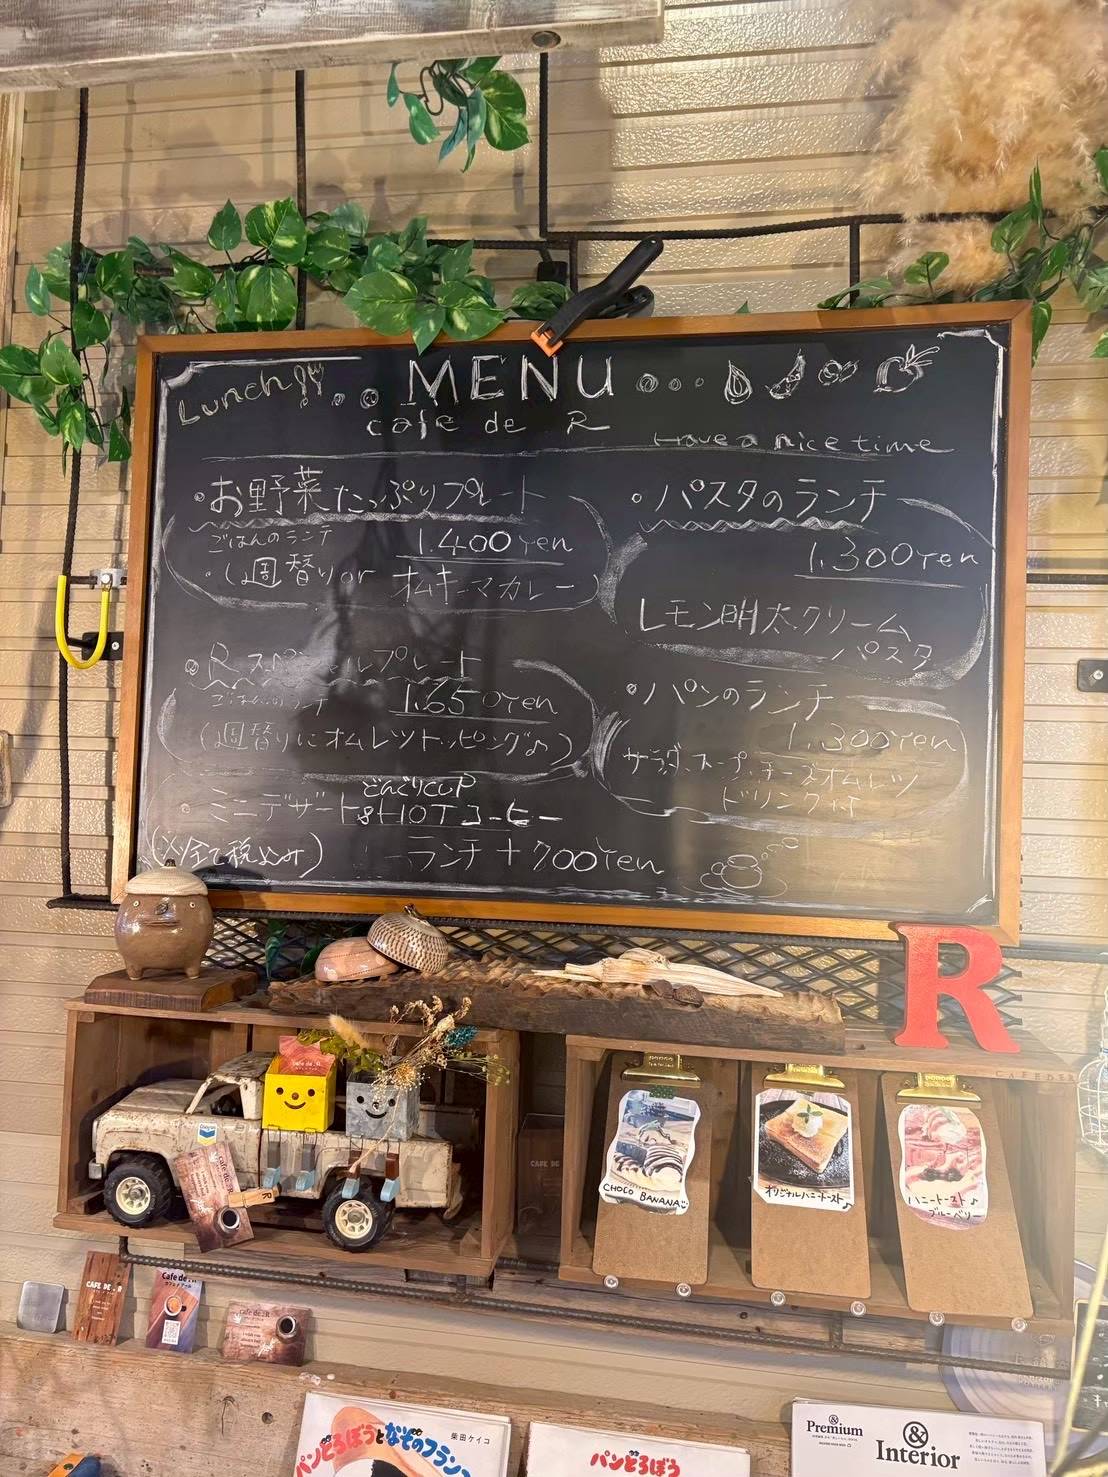 Lunch
MENU
cafe de R
Have a nice time
・お野菜たっぷりプレート
ごはんのランチ
1.400Yen
・(週替りor オムキーマカレー)
・Rスペシャルプレート
ごはんのランチ
1.650Yen
(週替りにオムレツトッピング♪)
どんぐりcup
・ミニデザート&HOTコーヒー
(※全て税込み)
ランチ+700Yen
・パスタのランチ
1.300Yen
レモン明太クリーム
パスタ
・パンのランチ
1.300Yen
サラダ、スープ、チーズオムレツ
ドリンク付
R
CAFE DE R
Cafe de .R
CAFE DE
R
CHOCO BANANA
オリジナルハニートースト♪
ハニートースト♪
ブルーベリー
CAFE DE . R
Cafe de .R
Cafe de .R
パンどろぼうとなぞのフランス
柴田ケイコ
パンどろぼう
&
Premium
&
Interior